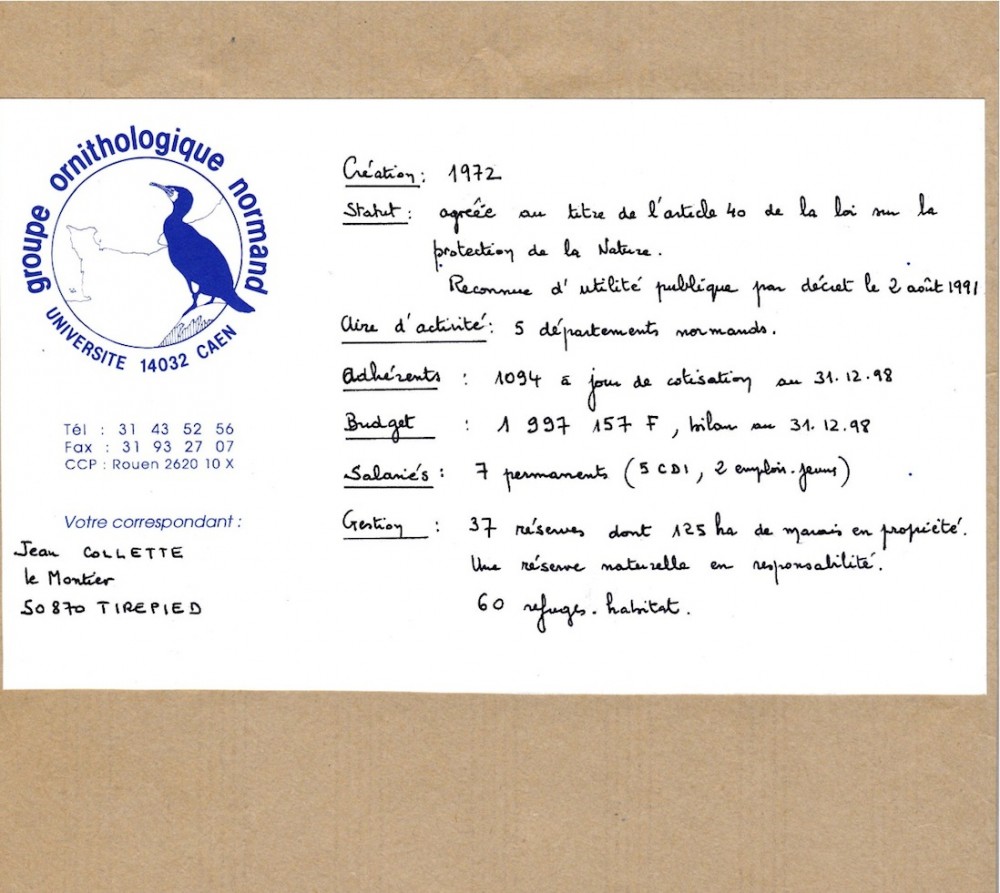 groupe ornithologique normand
UNIVERSITE 14032 CAEN
Tél : 31 43 52 56
Fax : 31 93 27 07
CCP : Rouen 2620 10 X
Votre correspondant :
Jean COLLETTE
le Montier
50870 TIREPIED
Création : 1972
Statut : agréée au titre de l'article 40 de la loi sur la
protection de la Nature.
Reconnue d'utilité publique par décret le 2 août 1991
Aire d'activité : 5 départements normands.
Adhérents : 1094 à jour de cotisation au 31.12.98
Budget : 1 997 157 F, bilan au 31.12.98
Salariés : 7 permanents (5 CDI, 2 emplois-jeunes)
Gestion : 37 réserves dont 125 ha de marais en propriété.
Une réserve naturelle en responsabilité.
60 refuges-habitat.